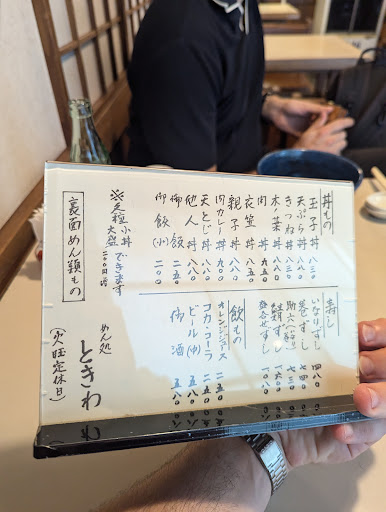 丼もの
玉子丼 八三〇
天ぷら丼
きつね丼 八三〇
木ノ葉丼 八八〇
肉丼
衣笠丼 八八〇
親子丼 八八〇
肉カレー丼
天とじ丼
他人丼
御飯 二五〇
御飯(小) 二〇〇
※小丼できます
大盛 二〇〇円増
裏面めん類もの
寿し
いなりずし 四八〇
巻ずし 七四〇
助六
鯖ずし
盛合せずし
飲もの
オレンジジュース 二五〇
コカ・コーラ 二五〇
ビール(中) 五八〇
御酒
めん処 ときわ
定休日)